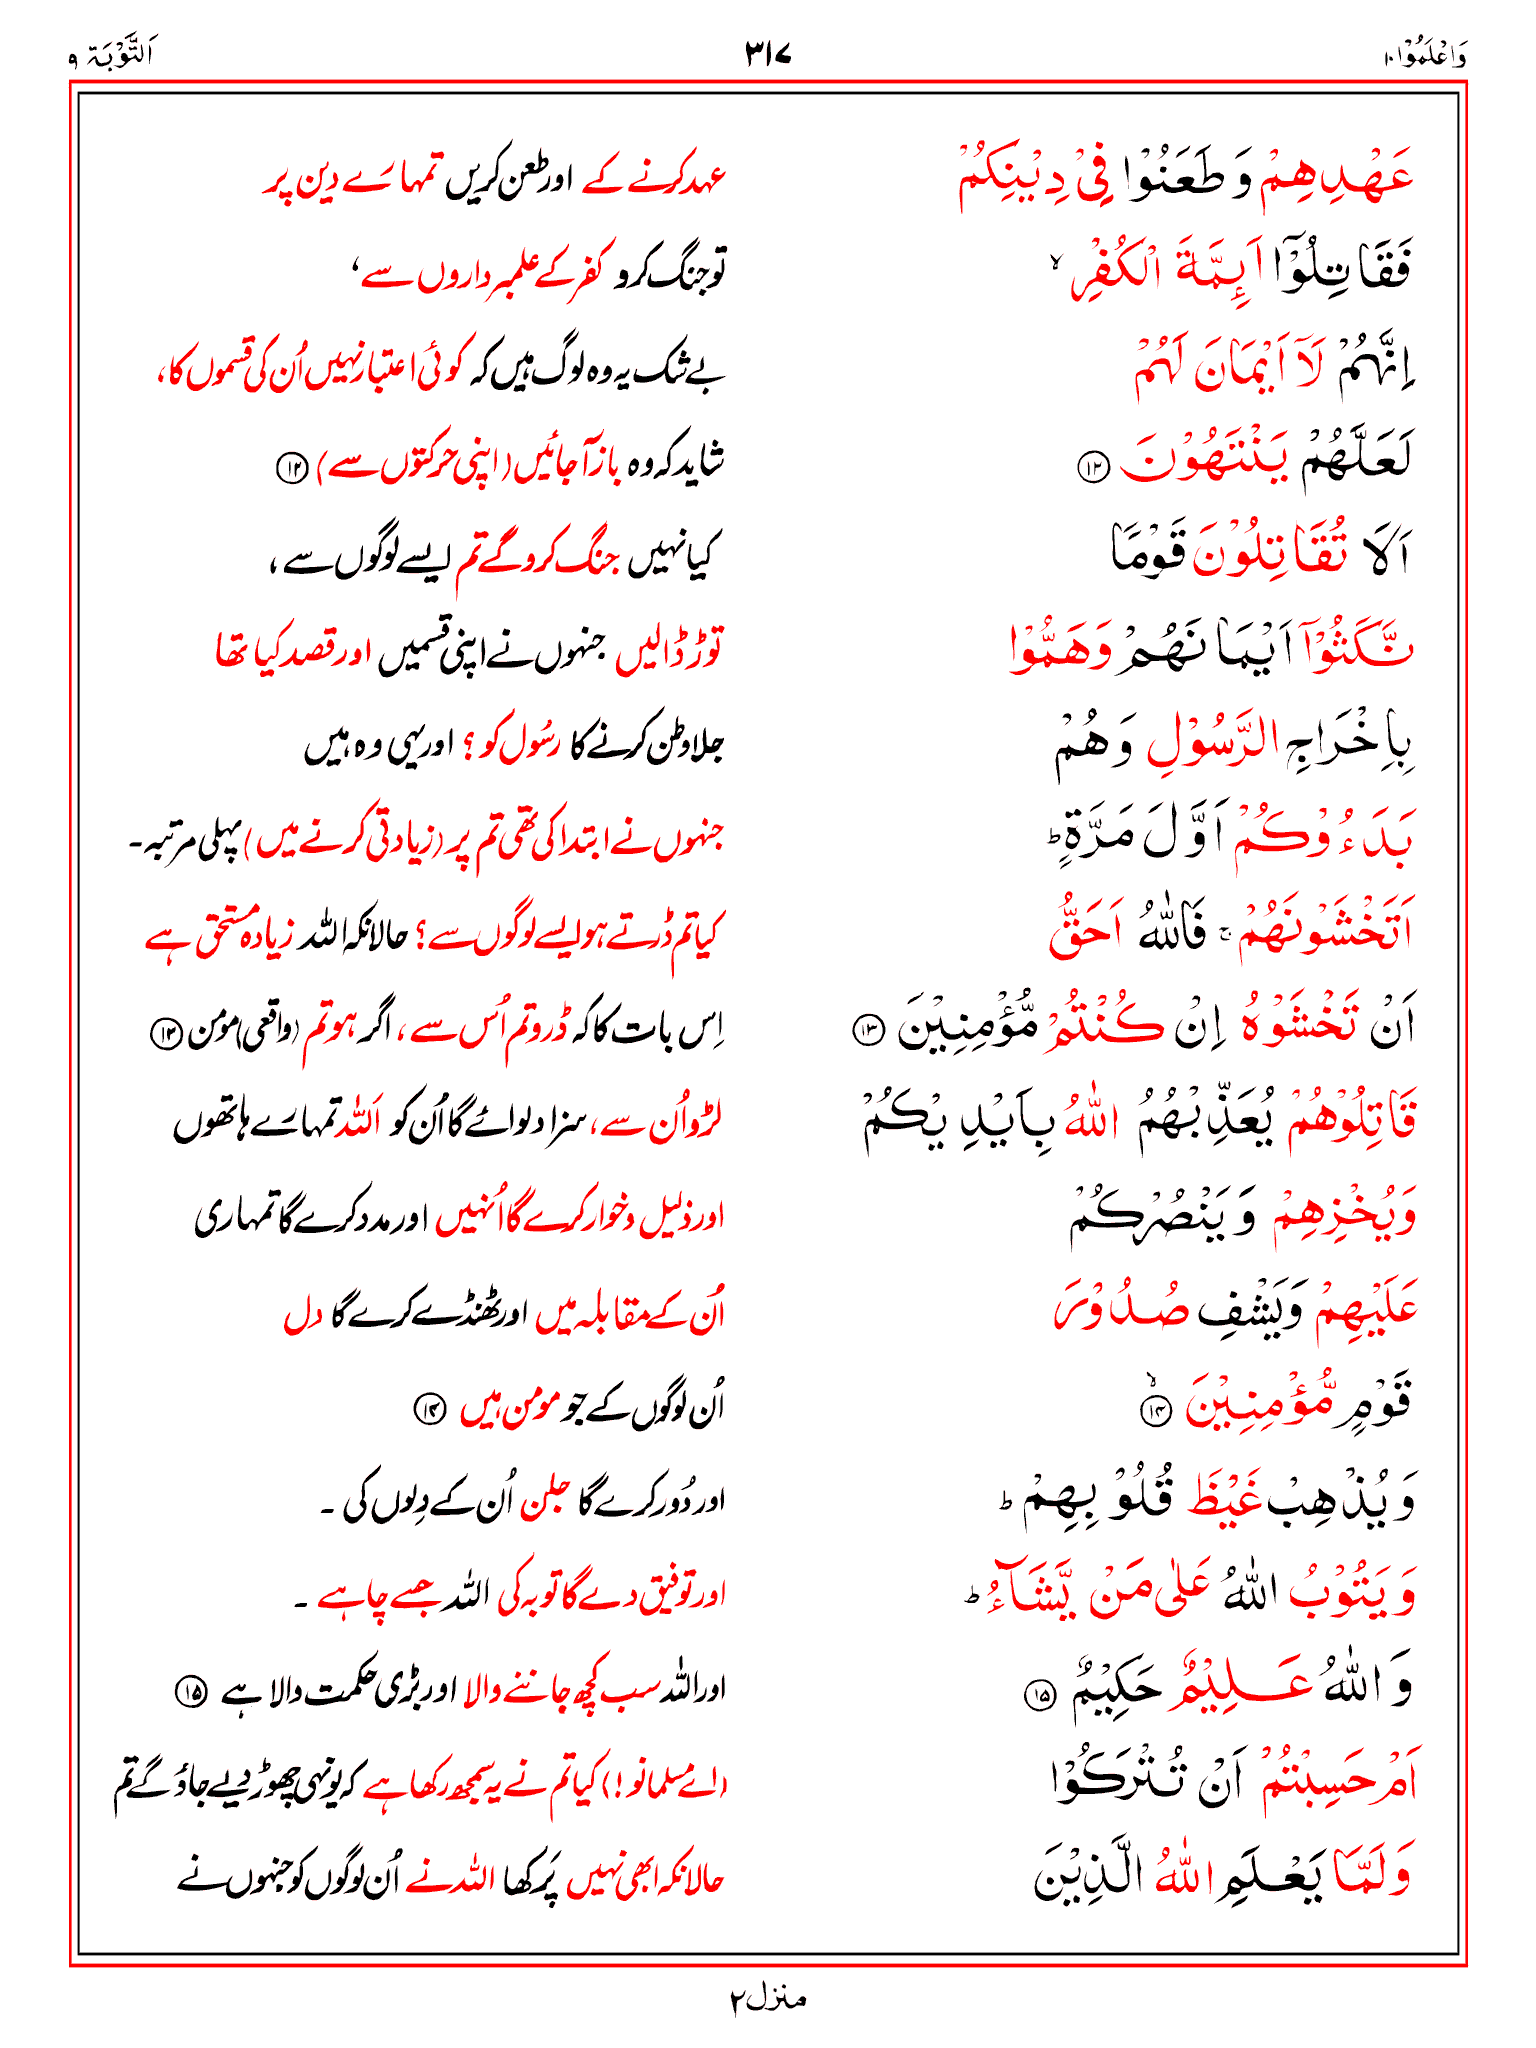 وَاعْلَمُوْا۱۰ ۳۱۷ اَلتَّوْبَة ۹
عَهْدِهِمْ وَطَعَنُوْا فِيْ دِيْنِكُمْ عہد کرنے کے اور طعن کریں تمہارے دین پر
فَقَاتِلُوْٓا اَئِمَّةَ الْكُفْرِ ۙ تو جنگ کرو کفر کے علمبرداروں سے،
اِنَّهُمْ لَآ اَيْمَانَ لَهُمْ بے شک یہ وہ لوگ ہیں کہ کوئی اعتبار نہیں اُن کی قسموں کا،
لَعَلَّهُمْ يَنْتَهُوْنَ ۝۱۲ شاید کہ وہ باز آجائیں (اپنی حرکتوں سے) ۝۱۲
اَلَا تُقَاتِلُوْنَ قَوْمًا کیا نہیں جنگ کرو گے تم ایسے لوگوں سے،
نَّكَثُوْٓا اَيْمَانَهُمْ وَهَمُّوْا توڑ ڈالیں جنہوں نے اپنی قسمیں اور قصد کیا تھا
بِاِخْرَاجِ الرَّسُوْلِ وَهُمْ جلاوطن کرنے کا رسُول کو؟ اور یہی وہ ہیں
بَدَءُوْكُمْ اَوَّلَ مَرَّةٍ ۭ جنہوں نے ابتدا کی تھی تم پر (زیادتی کرنے میں) پہلی مرتبہ۔
اَتَخْشَوْنَهُمْ ۚ فَاللّٰهُ اَحَقُّ کیا تم ڈرتے ہو ایسے لوگوں سے؟ حالانکہ اللہ زیادہ مستحق ہے
اَنْ تَخْشَوْهُ اِنْ كُنْتُمْ مُّؤْمِنِيْنَ ۝۱۳ اِس بات کا کہ ڈرو تم اُس سے، اگر ہو تم (واقعی) مومن ۝۱۳
قَاتِلُوْهُمْ يُعَذِّبْهُمُ اللّٰهُ بِاَيْدِيْكُمْ لڑو اُن سے، سزا دلوائے گا اُن کو اَللہ تمہارے ہاتھوں
وَيُخْزِهِمْ وَيَنْصُرْكُمْ اور ذلیل و خوار کرے گا اُنہیں اور مدد کرے گا تمہاری
عَلَيْهِمْ وَيَشْفِ صُدُوْرَ اُن کے مقابلہ میں اور ٹھنڈے کرے گا دل
قَوْمٍ مُّؤْمِنِيْنَ ۙ۝۱۴ اُن لوگوں کے جو مومن ہیں ۝۱۴
وَيُذْهِبْ غَيْظَ قُلُوْبِهِمْ ۭ اور دُور کرے گا جلن اُن کے دِلوں کی۔
وَيَتُوْبُ اللّٰهُ عَلٰى مَنْ يَّشَآءُ ۭ اور توفیق دے گا توبہ کی اللہ جسے چاہے۔
وَاللّٰهُ عَلِيْمٌ حَكِيْمٌ ۝۱۵ اور اللہ سب کچھ جاننے والا اور بڑی حکمت والا ہے ۝۱۵
اَمْ حَسِبْتُمْ اَنْ تُتْرَكُوْا (اے مسلمانو!) کیا تم نے یہ سمجھ رکھا ہے کہ یونہی چھوڑ دیے جاؤ گے تم
وَلَمَّا يَعْلَمِ اللّٰهُ الَّذِيْنَ حالانکہ ابھی نہیں پَرکھا اللہ نے اُن لوگوں کو جنہوں نے
منزل۲